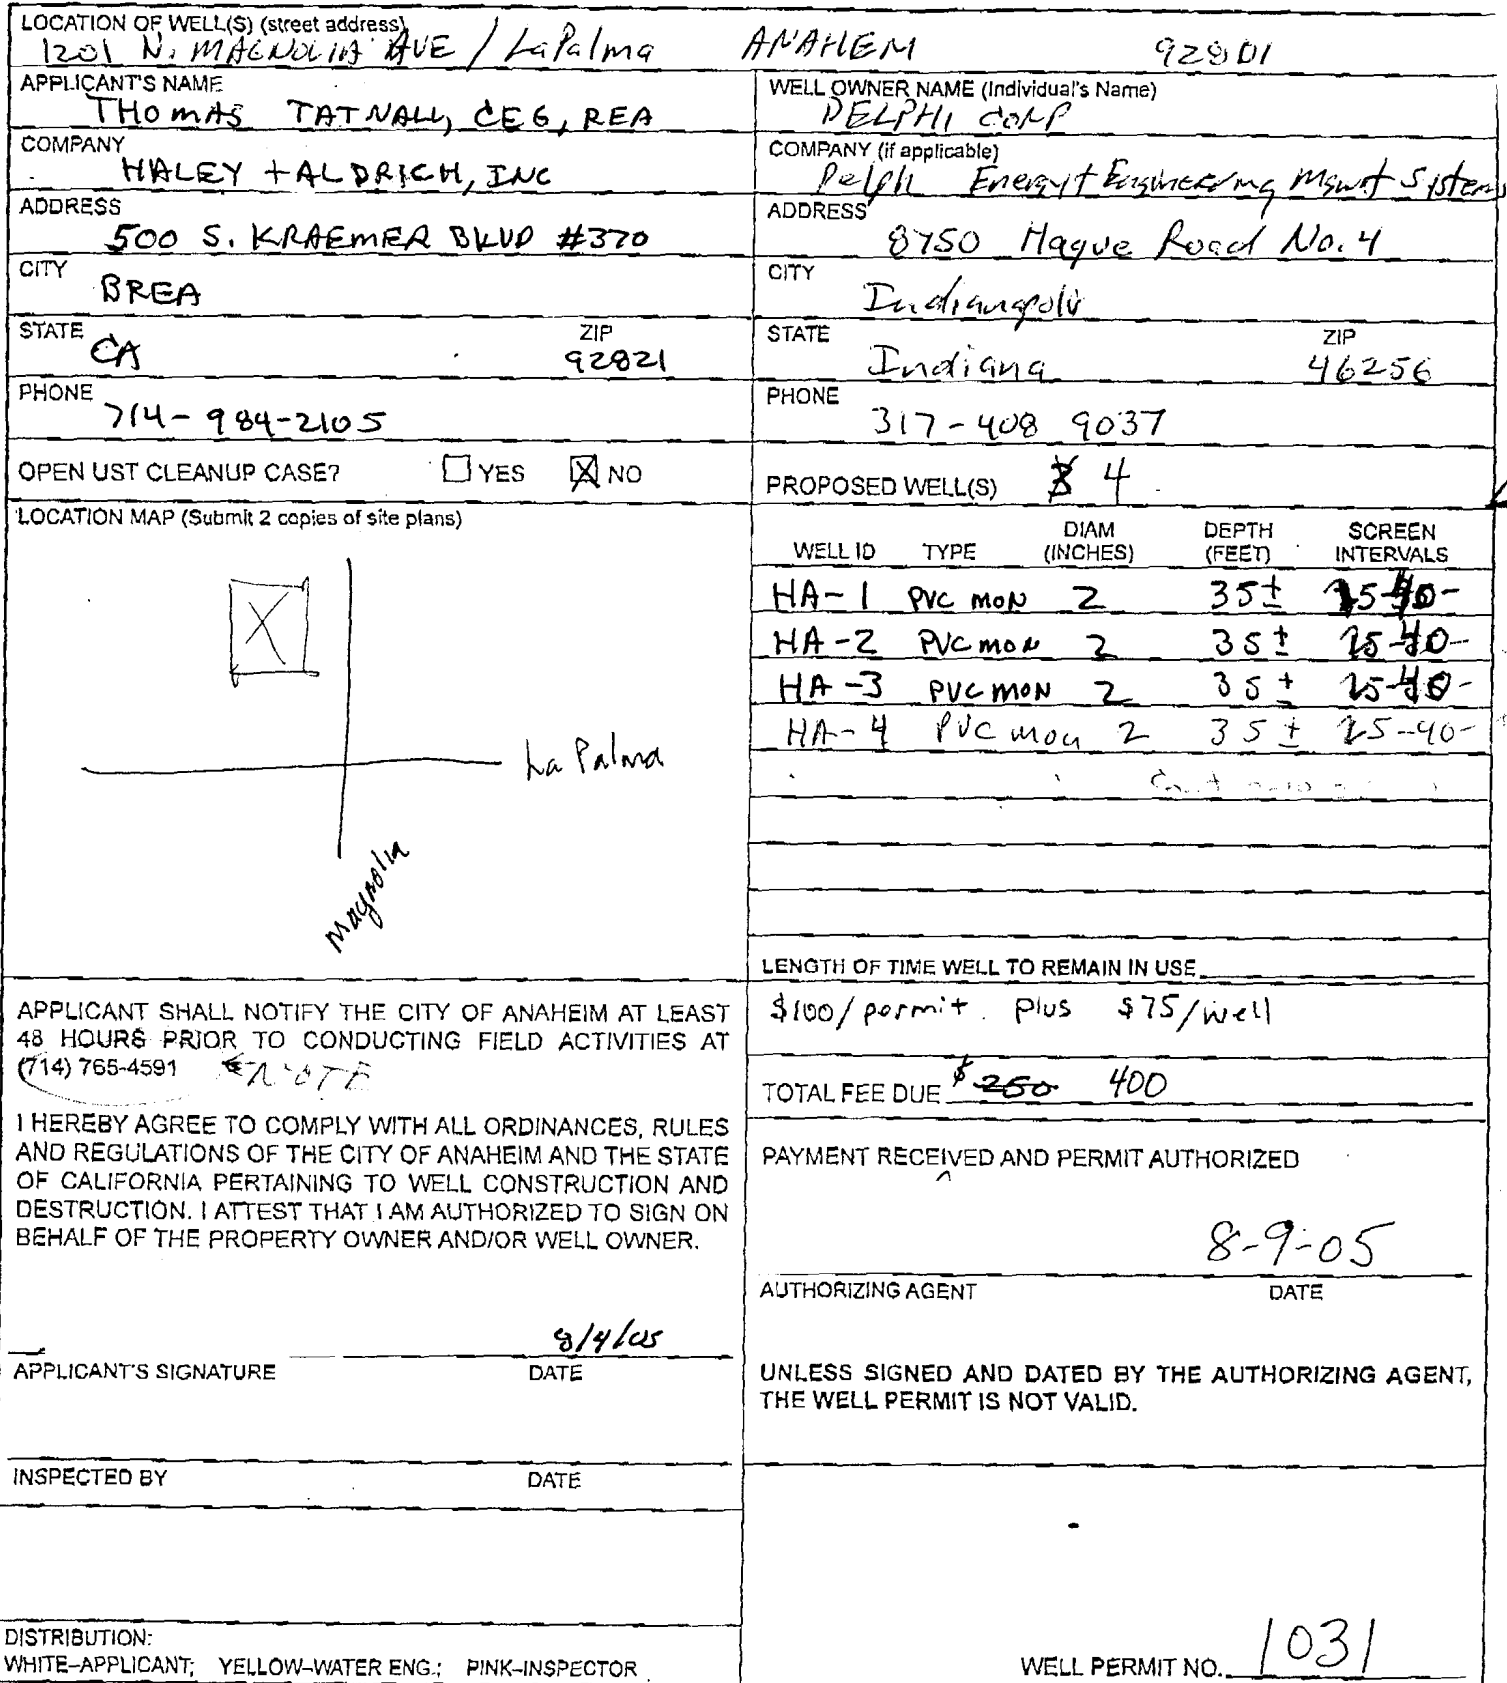 LOCATION OF WELL(S) (street address)
1201 N. MAGNOLIA AVE / La Palma ANAHEM 92801
APPLICANT'S NAME
THOMAS TATNALL, CEG, REA
COMPANY
HALEY + ALDRICH, INC
ADDRESS
500 S. KRAEMER BLVD #370
CITY
BREA
STATE ZIP
CA 92821
PHONE
714-984-2105
OPEN UST CLEANUP CASE? YES NO
LOCATION MAP (Submit 2 copies of site plans)
La Palma
Magnolia
APPLICANT SHALL NOTIFY THE CITY OF ANAHEIM AT LEAST
48 HOURS PRIOR TO CONDUCTING FIELD ACTIVITIES AT
(714) 765-4591 NOTE
I HEREBY AGREE TO COMPLY WITH ALL ORDINANCES, RULES
AND REGULATIONS OF THE CITY OF ANAHEIM AND THE STATE
OF CALIFORNIA PERTAINING TO WELL CONSTRUCTION AND
DESTRUCTION. I ATTEST THAT I AM AUTHORIZED TO SIGN ON
BEHALF OF THE PROPERTY OWNER AND/OR WELL OWNER.
8/4/05
APPLICANT'S SIGNATURE DATE
INSPECTED BY DATE
DISTRIBUTION:
WHITE-APPLICANT; YELLOW-WATER ENG.; PINK-INSPECTOR
WELL OWNER NAME (Individual's Name)
DELPHI CORP
COMPANY (if applicable)
Delphi Energy + Engineering Mgmt Systems
ADDRESS
8750 Hague Road No. 4
CITY
Indianapolis
STATE ZIP
Indiana 46256
PHONE
317-408 9037
PROPOSED WELL(S) 4
WELL ID TYPE DIAM (INCHES) DEPTH (FEET) SCREEN INTERVALS
HA-1 PVC MON 2 35± 25-40-
HA-2 PVC MON 2 35± 25-40-
HA-3 PVC MON 2 35± 25-40-
HA-4 PVC mon 2 35± 25-40-
LENGTH OF TIME WELL TO REMAIN IN USE
$100/permit. plus $75/well
TOTAL FEE DUE $ 250 400
PAYMENT RECEIVED AND PERMIT AUTHORIZED
8-9-05
AUTHORIZING AGENT DATE
UNLESS SIGNED AND DATED BY THE AUTHORIZING AGENT,
THE WELL PERMIT IS NOT VALID.
WELL PERMIT NO. 1031